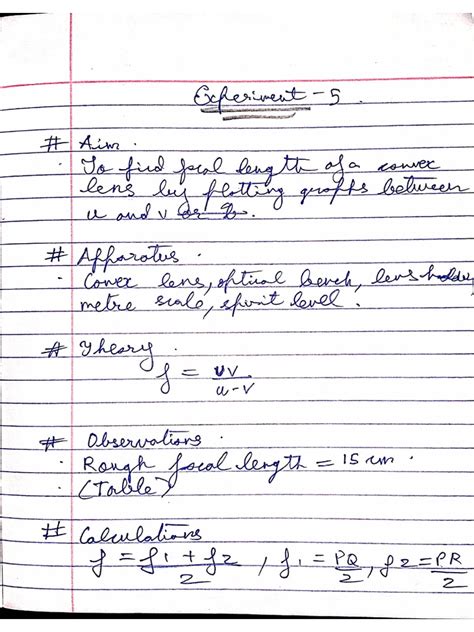 Experiment - 5.
# Aim.
· To find focal length of a convex
lens by plotting graphs between
u and v or 2.
# Apparatus.
· Conex lens, optical bench, lens holder,
metre scale, spirit level.
# Theory.
f = uv / u-v
# Observations.
· Rough focal length = 15 cm.
· (Table)
# Calculations
f = f1 + f2 / 2 , f1 = PQ / 2 , f2 = PR / 2